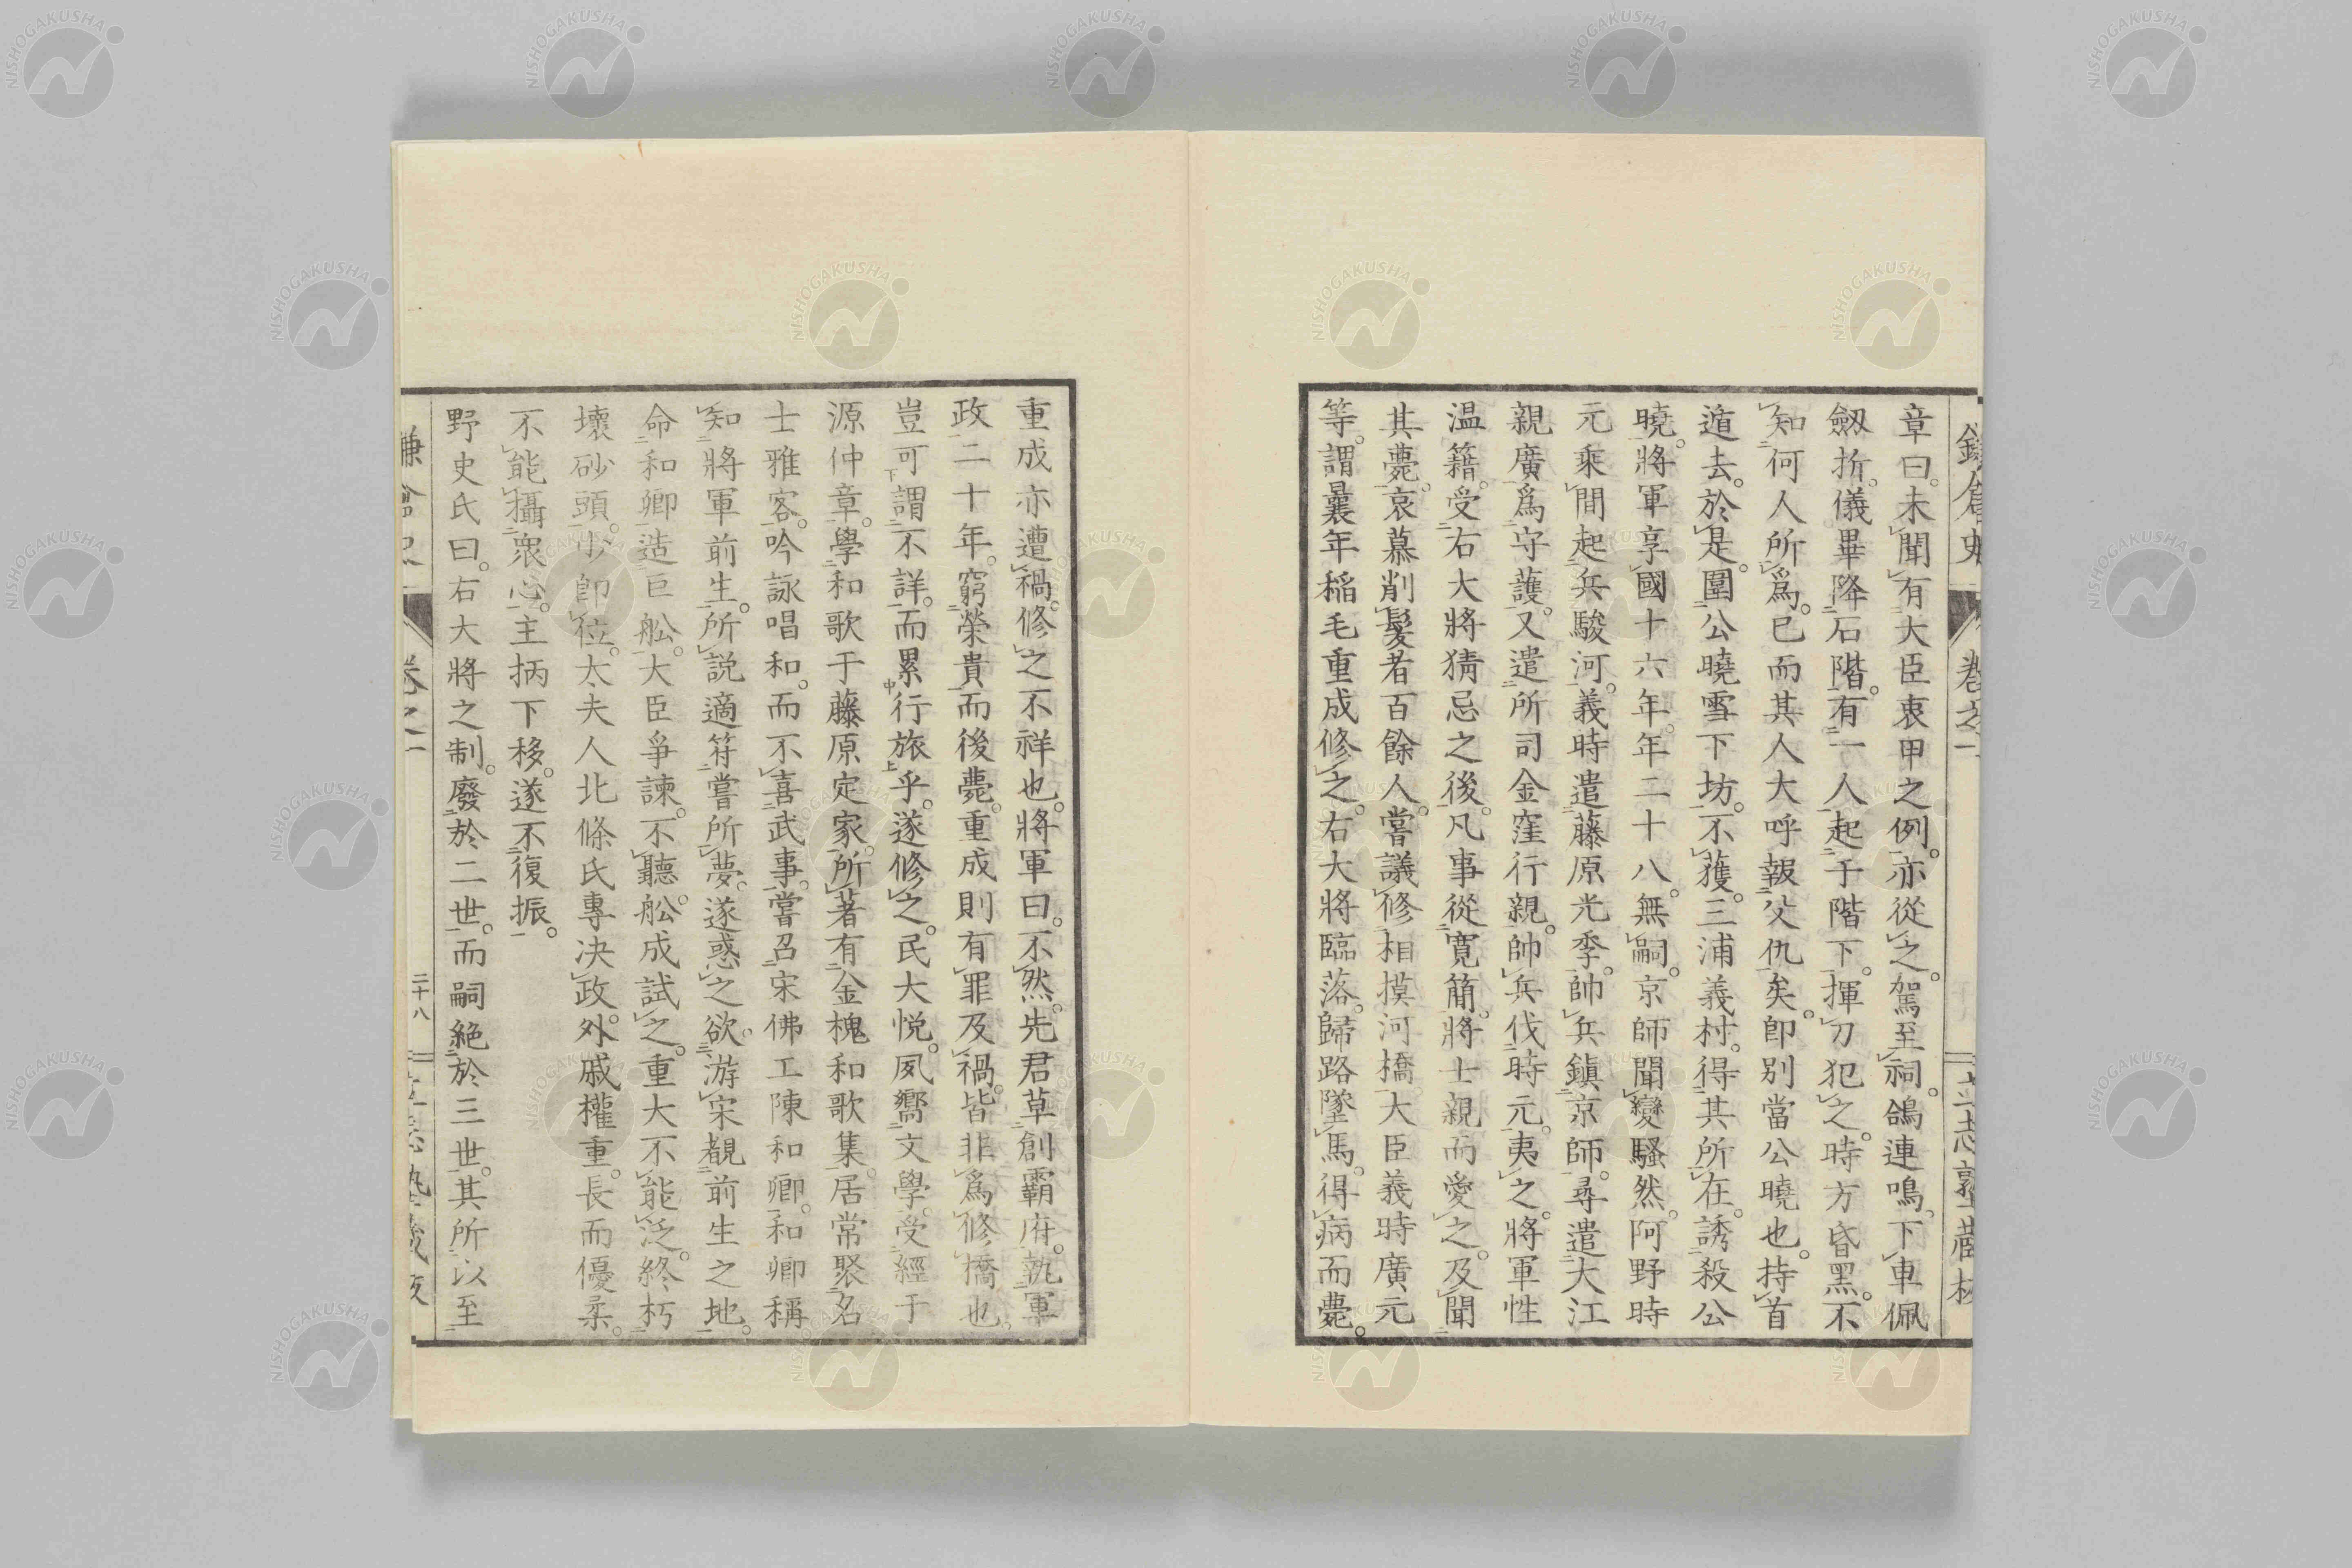 鎌倉史 卷之一 立志塾藏板
章曰。未聞有大臣衷甲之例。亦從之。駕至祠。鴿連鳴。下車佩
劔折。儀畢降石階。有一人起于階下。揮刀犯之。時方昏黑。不
知何人所爲。已而其人大呼報父仇矣。卽別當公曉也。持首
遁去。於是圍公曉雪下坊。不獲。三浦義村。得其所在。誘殺公
曉。將軍享國十六年。年二十八。無嗣。京師聞變騷然。阿野時
元乘間起兵駿河。義時遣藤原光季。帥兵鎭京師。尋遣大江
親廣爲守護。又遣所司金窪行親。帥兵伐時元。夷之。將軍性
温籍。受右大將猜忌之後。凡事從寛簡。將士親而愛之。及聞
其薨。哀慕削髮者百餘人。嘗議修相摸河橋。大臣義時廣元
等。謂曩年稲毛重成修之。右大將臨落。歸路墜馬。得病而薨。
重成亦遭禍。修之不祥也。將軍曰。不然。先君草創霸府。執軍
政二十年。窮榮貴而後薨。重成則有罪及禍。皆非爲修橋也。
豈可謂不詳。而累行旅乎。遂修之。民大悦。夙嚮文學。受經于
源仲章。學和歌于藤原定家。所著有金槐和歌集。居常聚名
士雅客。吟詠唱和。而不喜武事。嘗召宋佛工陳和卿。和卿稱
知將軍前生。所説適符嘗所夢。遂惑之。欲游宋覩前生之地。
命和卿造巨舩。大臣爭諫。不聽。舩成試之。重大不能泛。終朽
壞砂頭。少卽位。太夫人北條氏專決政。外戚權重。長而優柔。
不能攝衆心。主柄下移。遂不復振。
野史氏曰。右大將之制。廢於二世。而嗣絶於三世。其所以至
鎌倉史 卷之一 二十八 立志塾藏板
NISHOGAKUSHA